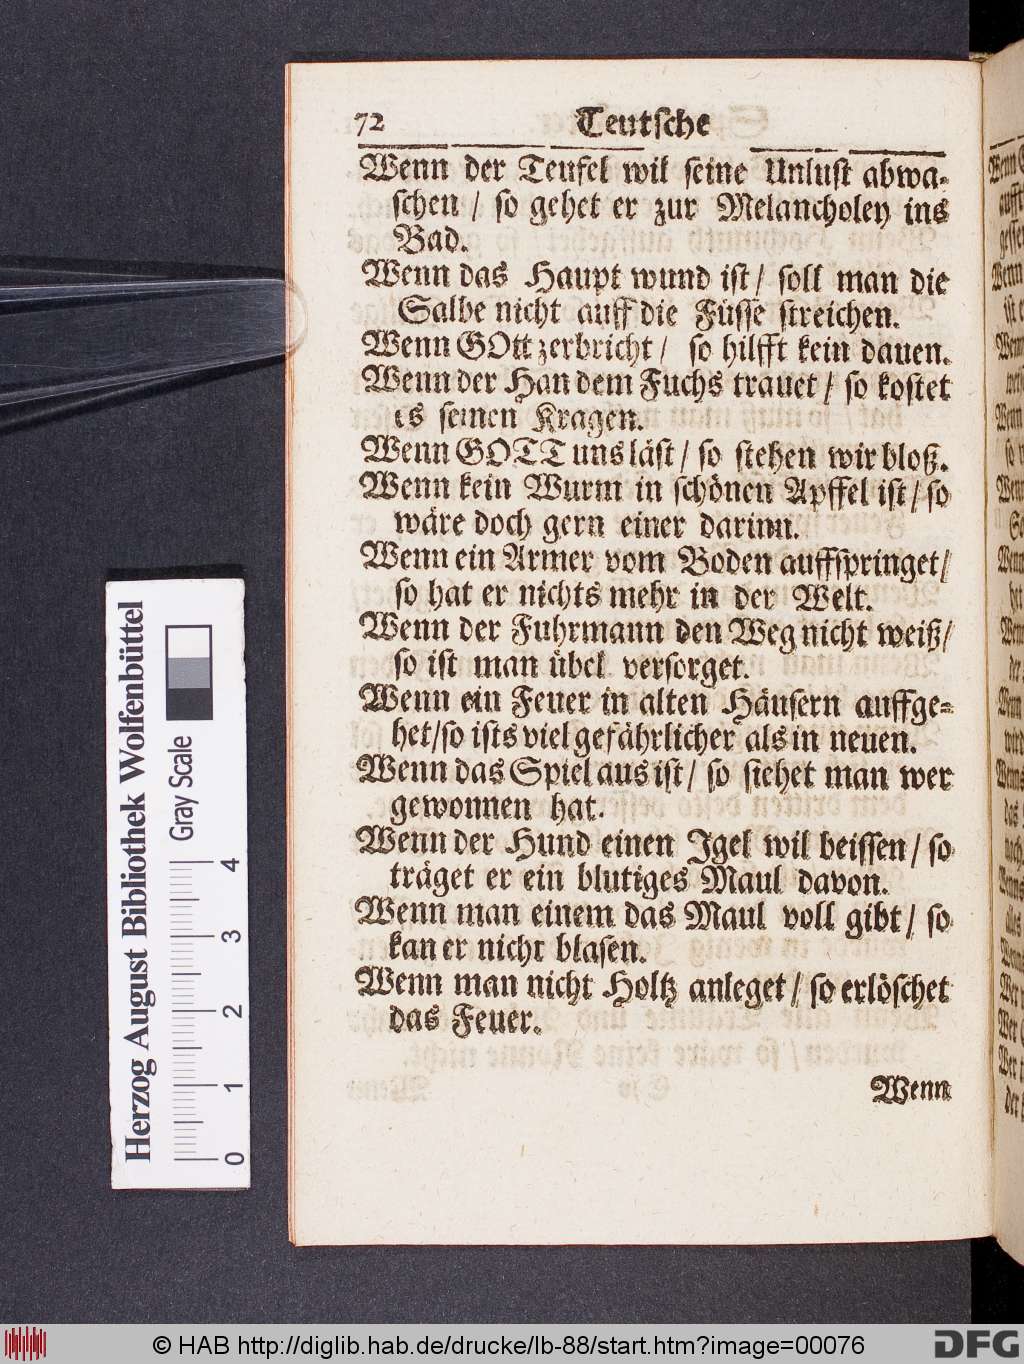 72 Teutsche
Wenn der Teufel wil seine Unlust abwa-
schen / so gehet er zur Melancholey ins
Bad.
Wenn das Haupt wund ist / soll man die
Salbe nicht auff die Füsse streichen.
Wenn GOtt zerbricht / so hilfft kein bauen.
Wenn der Han dem Fuchs trauet / so kostet
es seinen Kragen.
Wenn GOTT uns läst / so stehen wir bloß.
Wenn kein Wurm in schönen Apffel ist / so
wäre doch gern einer darinn.
Wenn ein Armer vom Boden auffspringet /
so hat er nichts mehr in der Welt.
Wenn der Fuhrmann den Weg nicht weiß /
so ist man übel versorget.
Wenn ein Feuer in alten Häusern auffge-
het / so ists viel gefährlicher als in neuen.
Wenn das Spiel aus ist / so siehet man wer
gewonnen hat.
Wenn der Hund einen Igel wil beissen / so
träget er ein blutiges Maul davon.
Wenn man einem das Maul voll gibt / so
kan er nicht blasen.
Wenn man nicht Holtz anleget / so erlöschet
das Feuer.
Wenn
Herzog August Bibliothek Wolfenbüttel
Gray Scale
0 1 2 3 4
© HAB http://diglib.hab.de/drucke/lb-88/start.htm?image=00076
DFG